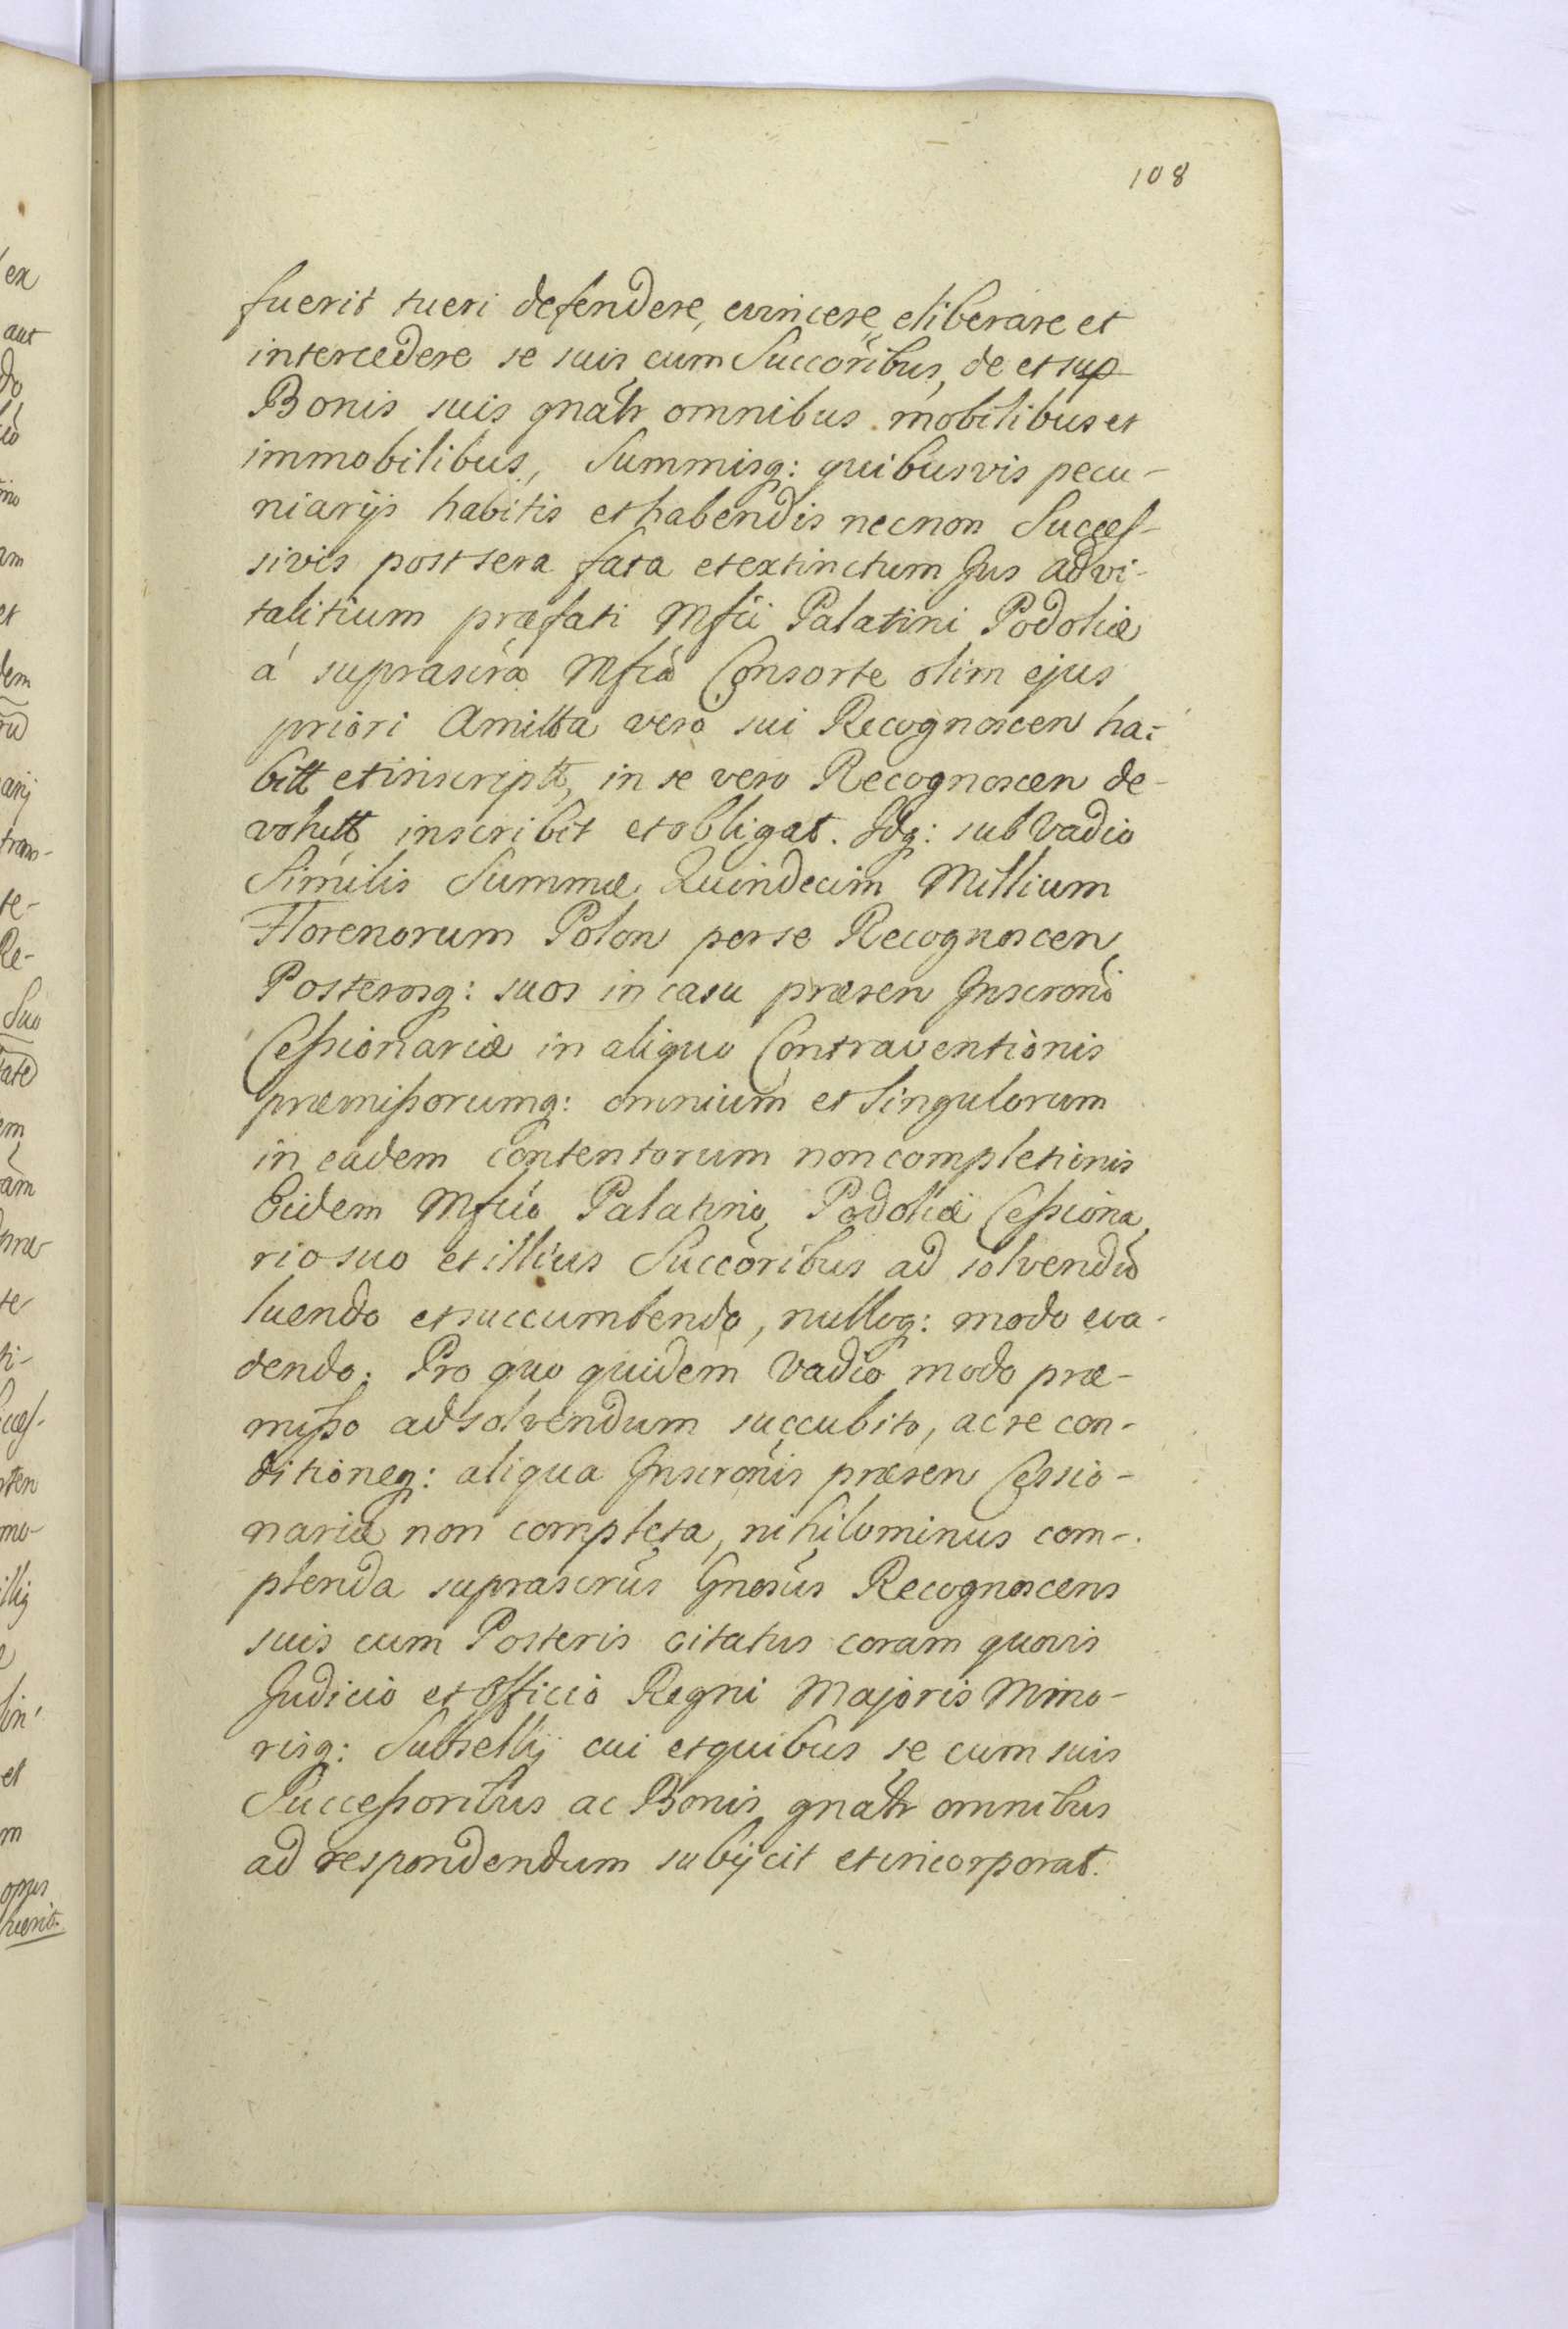 108
fuerit tueri defendere, evincere, eliberare et
intercedere se suis cum Succoribus, de et sup
Bonis suis gnatr omnibus mobilibus et
immobilibus, Summisq: quibusvis pecu-
niarijs habitis et habendis necnon Succes-
sivis post sera fata et extinctum Jus advi-
talitium præfati Mfci Palatini Podoliæ
á suprascrã Mfcã Consorte olim ejus
priori Amitta vero sui Recognoscen ha-
bitt et inscriptt, in se vero Recognoscen de-
volutt inscribit et obligat. Idq: sub Vadio
Similis Summæ Quindecim Millium
Florenorum Polon per se Recognoscen
Posterosq: suos in casu præsen Inscroni
Cessionariæ in aliquo Contraventionis
præmissorumq: omnium et Singulorum
in eadem contentorum non completionis
Eidem Mfco Palatino Podoliæ Cessiona
rio suo et illius Succoribus ad solvendo
luendo et succumbendo, nulloq: modo eva-
dendo. Pro quo quidem Vadio modo præ-
misso ad solvendum succubito, ac re con-
ditioneq: aliqua Inscronis præsen Cessio-
nariæ non completa, nihilominus com-
plenda suprascrus Gnosus Recognoscens
suis cum Posteris citatus coram quovis
Judicio et Officio Regni Majoris Mino-
risq: Subsellij cui et quibus se cum suis
Successoribus ac Bonis gnatr omnibus
ad respondendum subijcit et incorporat.